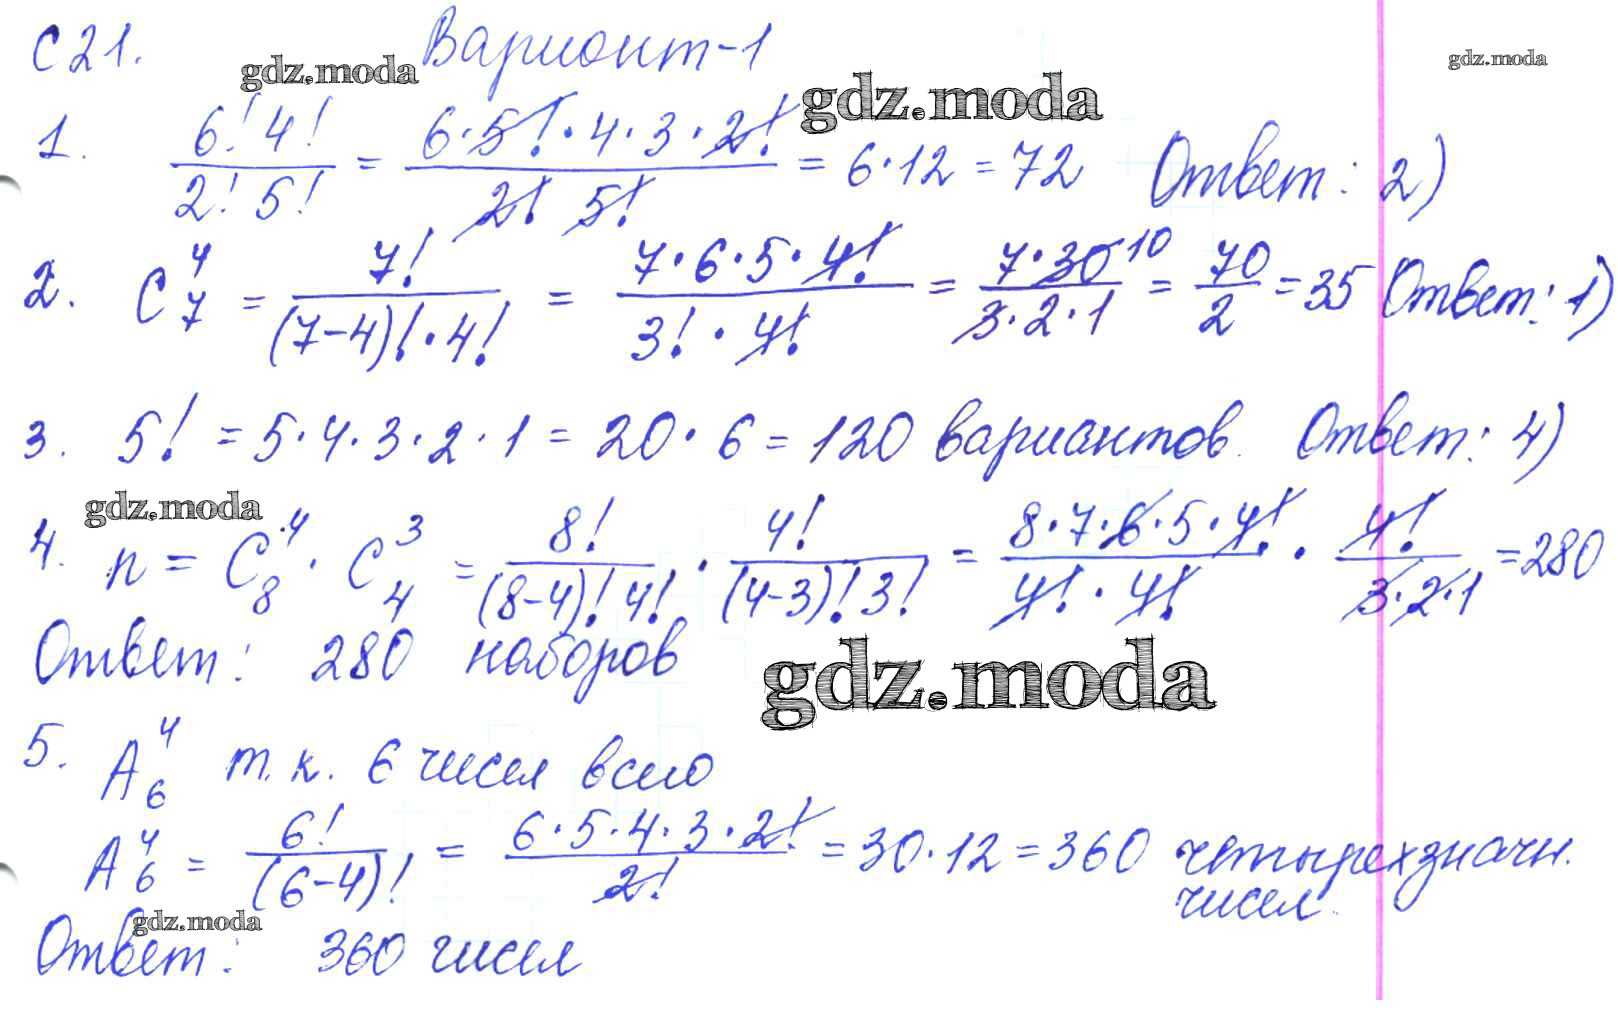 С 21. Вариант-1
gdz.moda gdz.moda gdz.moda
1. 6! 4! / 2! 5! = 6·5!·4·3·2! / 2! 5! = 6·12 = 72 Ответ: 2)
2. C₇⁴ = 7! / (7-4)!·4! = 7·6·5·4! / 3!·4! = 7·30 10 / 3·2·1 = 70 / 2 = 35 Ответ: 1)
3. 5! = 5·4·3·2·1 = 20·6 = 120 вариантов. Ответ: 4)
gdz.moda
4. n = C₈⁴ · C₄³ = 8! / (8-4)! 4! · 4! / (4-3)! 3! = 8·7·6·5·4! / 4!·4! · 4! / 3·2·1 = 280
Ответ: 280 наборов
gdz.moda
5. A₆⁴ т.к. 6 чисел всего
A₆⁴ = 6! / (6-4)! = 6·5·4·3·2! / 2! = 30·12 = 360 четырехзначн.
чисел.
gdz.moda
Ответ: 360 чисел